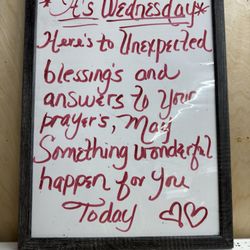 *It's Wednesday*
Here's to Unexpected
blessing's and
answers to your
prayer's, May
Something wonderful
happen for you
Today